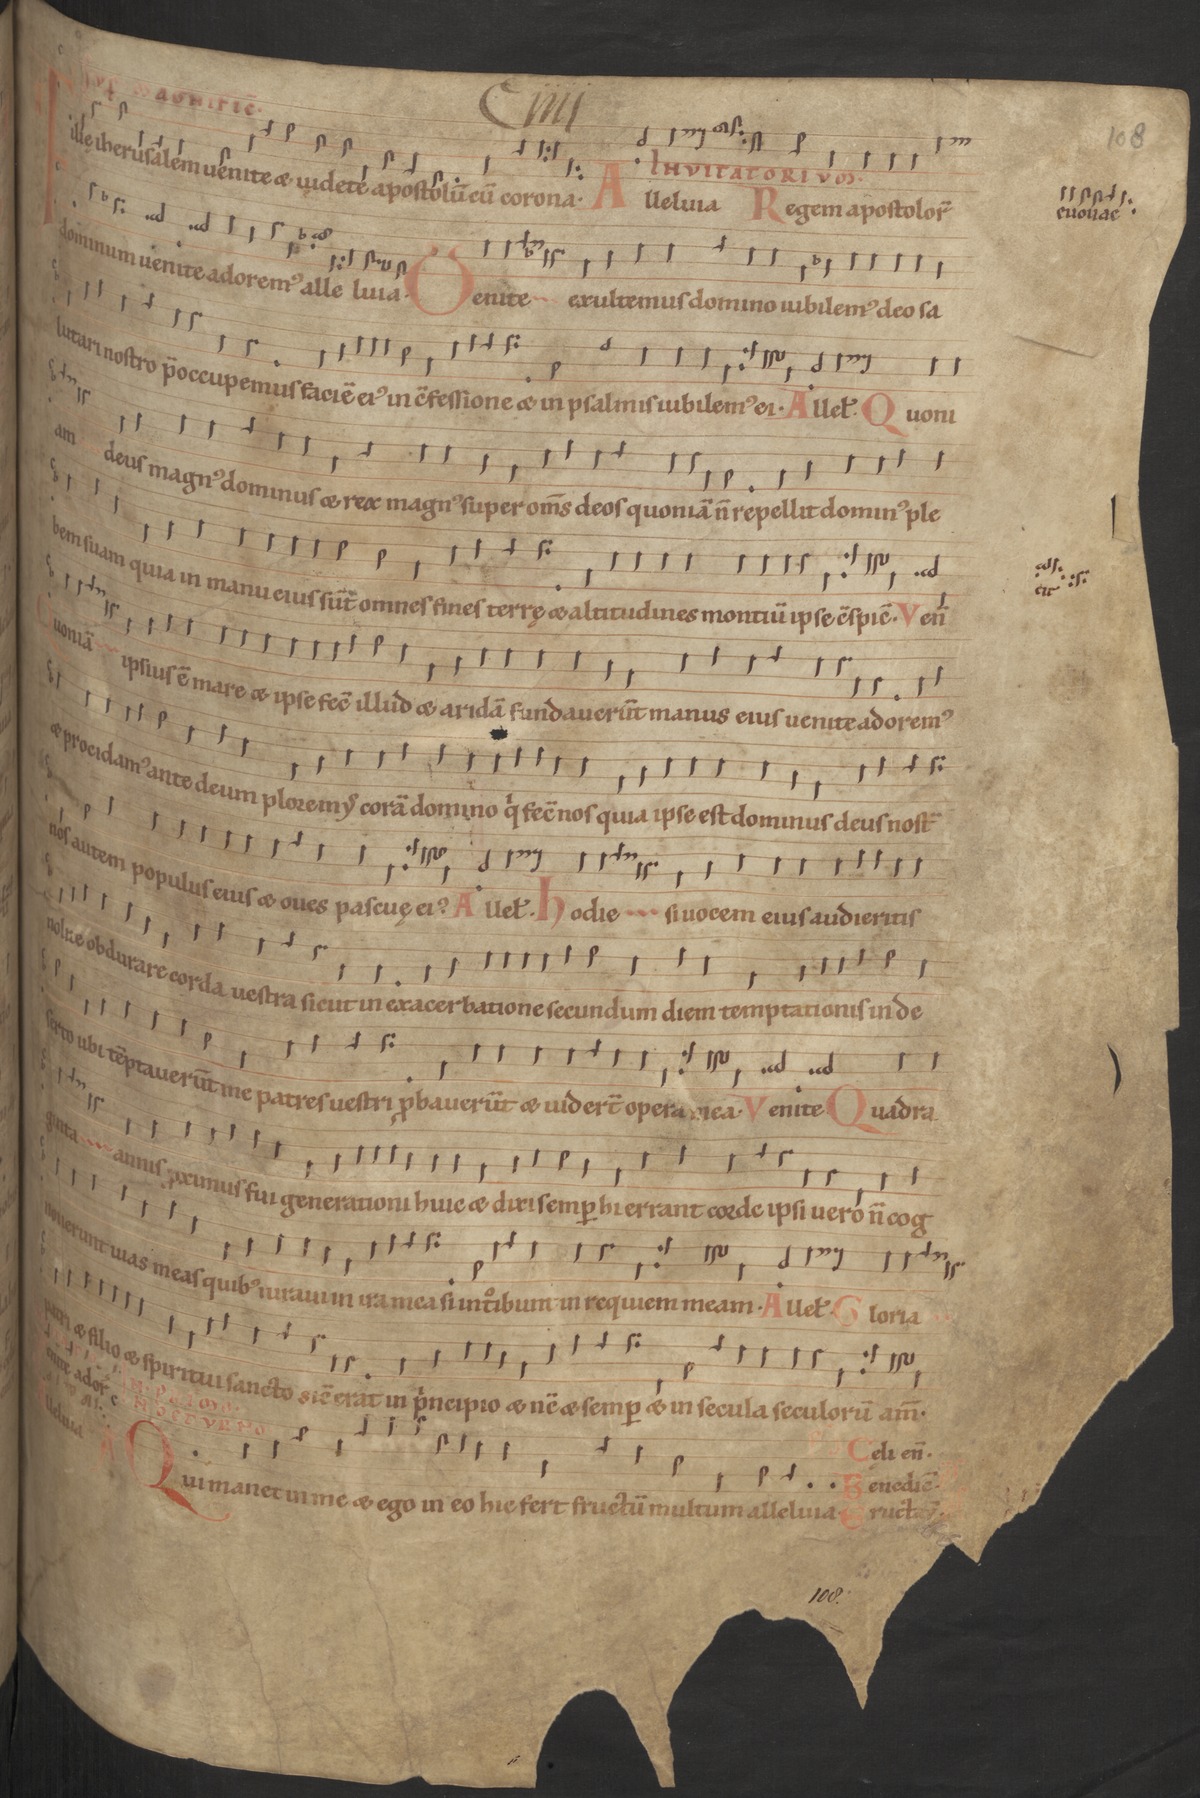 Ciiii
108
magnific̄
INVITATORIVM
ille iherusalem uenite & uidete apostolū cū corona. Alleluia Regem apostolor̄
euouae
dominum uenite adorem⁹ alle luia. Venite exultemus domino iubilem⁹ deo sa
lutari nostro p̄occupemus faciē ei⁹ in c̄fessione & in psalmis iubilem⁹ ei. Allel̄. Quoni
am deus magn⁹ dominus & rex magn⁹ super om̄s deos quoniā n̄ repellit domin⁹ ple
bem suam quia in manu eius sūt omnes fines terrę & altitudines montiū ipse c̄spic̄. Ven̄
Quoniā ipsius ē mare & ipse fec̄ illud & aridā fundauerūt manus eius uenite adorem⁹
& procidam⁹ ante deum ploremus corā domino q̇ fec̄ nos quia ipse est dominus deus nost̄
nos autem populus eius & oues pascuę ei⁹ Allel̄. Hodie si uocem eius audieritis
nolite obdurare corda uestra sicut in exacerbatione secundum diem temptationis in de
serto ubi tēptauerūt me patres uestri ꝓbauerūt & uidert̄ opera mea. Venite Quadra
ginta annis ꝓximus fui generationi huic & dixi semꝑ hi errant corde ipsi uero n̄ cog
nouerunt uias meas quib⁹ iuraui in ira mea si int̊ibunt in requiem meam. Allel̄. Gloria
patri & filio & spiritui sancto sic̄ erat in p̍ncipio & nc̄ & semꝑ & in secula seculorū am̄.
NOCTVRNO
Celi en̄.
Benedic̄
Qui manet in me & ego in eo hic fert fructū multum alleluia.
108.